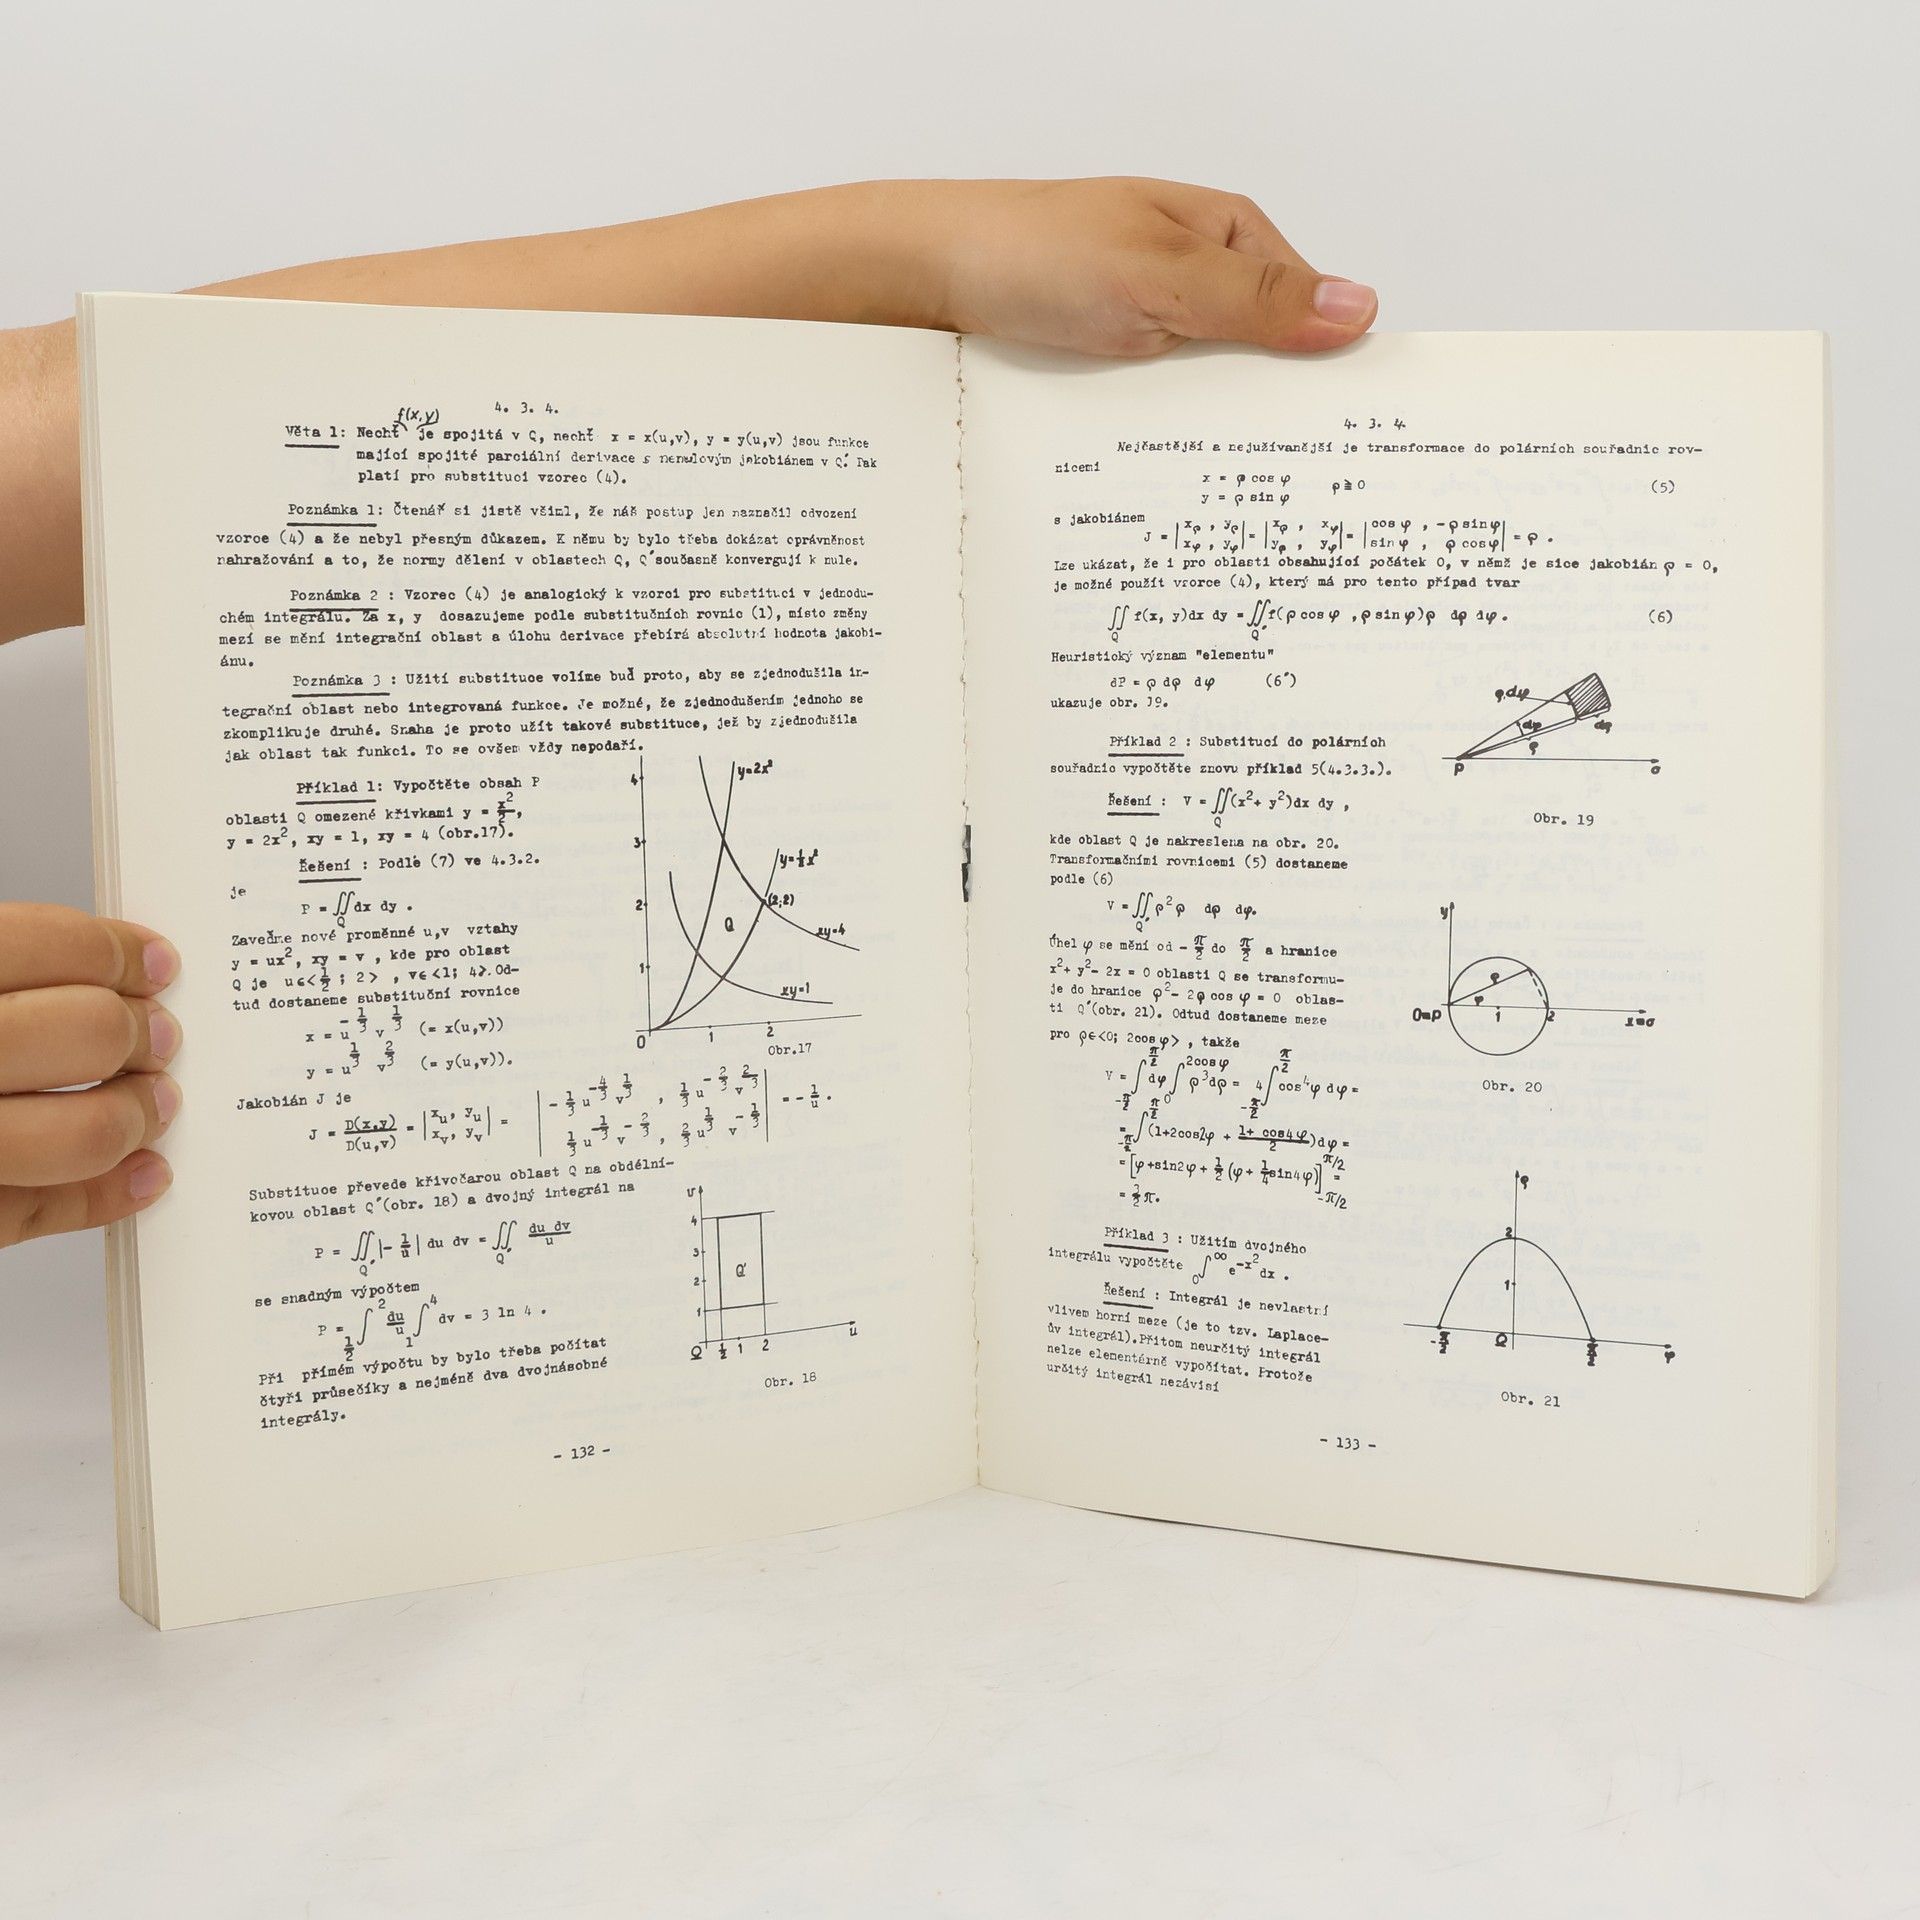 4. 3. 4.
f(x,y)
Věta 1: Nechť je spojitá v Q, nechť x = x(u,v), y = y(u,v) jsou funkce
mající spojité parciální derivace s nenulovým jakobiánem v Q′. Pak
platí pro substituci vzorec (4).
Poznámka 1: Čtenář si jistě všiml, že náš postup jen naznačil odvození
vzorce (4) a že nebyl přesným důkazem. K němu by bylo třeba dokázat oprávněnost
nahražování a to, že normy dělení v oblastech Q, Q′ současně konvergují k nule.
Poznámka 2 : Vzorec (4) je analogický k vzorci pro substituci v jednodu-
chém integrálu. Za x, y dosazujeme podle substitučních rovnic (1), místo změny
mezí se mění integrační oblast a úlohu derivace přebírá absolutní hodnota jakobi-
ánu.
Poznámka 3 : Užití substituce volíme buď proto, aby se zjednodušila in-
tegrační oblast nebo integrovaná funkce. Je možné, že zjednodušením jednoho se
zkomplikuje druhé. Snaha je proto užít takové substituce, jež by zjednodušila
jak oblast tak funkci. To se ovšem vždy nepodaří.
Příklad 1: Vypočtěte obsah P
oblasti Q omezené křivkami y = x²/2,
y = 2x², xy = 1, xy = 4 (obr.17).
Řešení : Podle (7) ve 4.3.2.
je
P = ∬ dx dy .
Q
Zaveďme nové proměnné u,v vztahy
y = ux², xy = v , kde pro oblast
Q je u∈<1/2 ; 2> , v∈<1; 4>. Od-
tud dostaneme substituční rovnice
x = u^(-1/3) v^(1/3) (= x(u,v))
y = u^(1/3) v^(2/3) (= y(u,v)).
4
3
2
1
0
1
2
y=2x²
y=½x²
(2;2)
Q
xy=4
xy=1
Obr.17
Jakobián J je
J = D(x,y)/D(u,v) = | x_u, y_u | = | -1/3 u^(-4/3) v^(1/3) , 1/3 u^(-2/3) v^(2/3) | = - 1/u .
| x_v, y_v | | 1/3 u^(-1/3) v^(-2/3) , 2/3 u^(1/3) v^(-1/3) |
Substituce převede křivočarou oblast Q na obdélní-
kovou oblast Q′(obr. 18) a dvojný integrál na
P = ∬ |- 1/u| du dv = ∬ du dv/u
Q′ Q′
se snadným výpočtem
P = ∫_{1/2}^{2} du/u ∫_{1}^{4} dv = 3 ln 4 .
Při přímém výpočtu by bylo třeba počítat
čtyři průsečíky a nejméně dva dvojnásobné
integrály.
v
4
3
2
1
Q′
O ½ 1 2
u
Obr. 18
- 132 -
4. 3. 4.
Nejčastější a nejužívanější je transformace do polárních souřadnic rov-
nicemi
x = ρ cos φ
y = ρ sin φ ρ≧0 (5)
s jakobiánem
J = | x_ρ , y_ρ | = | x_ρ , x_φ | = | cos φ , -ρ sin φ | = ρ .
| x_φ , y_φ | | y_ρ , y_φ | | sin φ , ρ cos φ |
Lze ukázat, že i pro oblasti obsahující počátek O, v němž je sice jakobián ρ = 0,
je možné použít vzorce (4), který má pro tento případ tvar
∬ f(x, y)dx dy = ∬ f(ρ cos φ , ρ sin φ)ρ dρ dφ . (6)
Q Q′
Heuristický význam "elementu"
dP = ρ dρ dφ (6′)
ukazuje obr. 19.
ρ.dφ
dφ
dρ
ρ
P
o
Obr. 19
Příklad 2 : Substitucí do polárních
souřadnic vypočtěte znovu příklad 5(4.3.3.).
Řešení : V = ∬(x²+ y²)dx dy ,
Q
kde oblast Q je nakreslena na obr. 20.
Transformačními rovnicemi (5) dostaneme
podle (6)
V = ∬ ρ² ρ dρ dφ.
Q′
Úhel φ se mění od - π/2 do π/2 a hranice
x²+ y²- 2x = 0 oblasti Q se transformu-
je do hranice ρ²- 2ρ cos φ = 0 oblas-
ti Q′(obr. 21). Odtud dostaneme meze
pro ρ∈<0; 2cos φ> , takže
y
ρ
φ
O≡P
1
2
x≡o
Obr. 20
V = ∫_{-π/2}^{π/2} dφ ∫_{0}^{2cos φ} ρ³dρ = 4 ∫_{-π/2}^{π/2} cos⁴φ dφ =
= ∫_{-π/2}^{π/2} (1+2cos2φ + 1+ cos4φ/2)dφ =
= [φ+sin2φ + 1/2 (φ + 1/4 sin4φ)]_{-π/2}^{π/2} =
= 3/2 π.
Příklad 3 : Užitím dvojného
integrálu vypočtěte ∫_{0}^{∞} e^(-x²) dx .
Řešení : Integrál je nevlastní
vlivem horní meze (je to tzv. Laplace-
ův integrál).Přitom neurčitý integrál
nelze elementárně vypočítat. Protože
určitý integrál nezávisí
ρ
2
1
-π/2
O
π/2
φ
Obr. 21
- 133 -